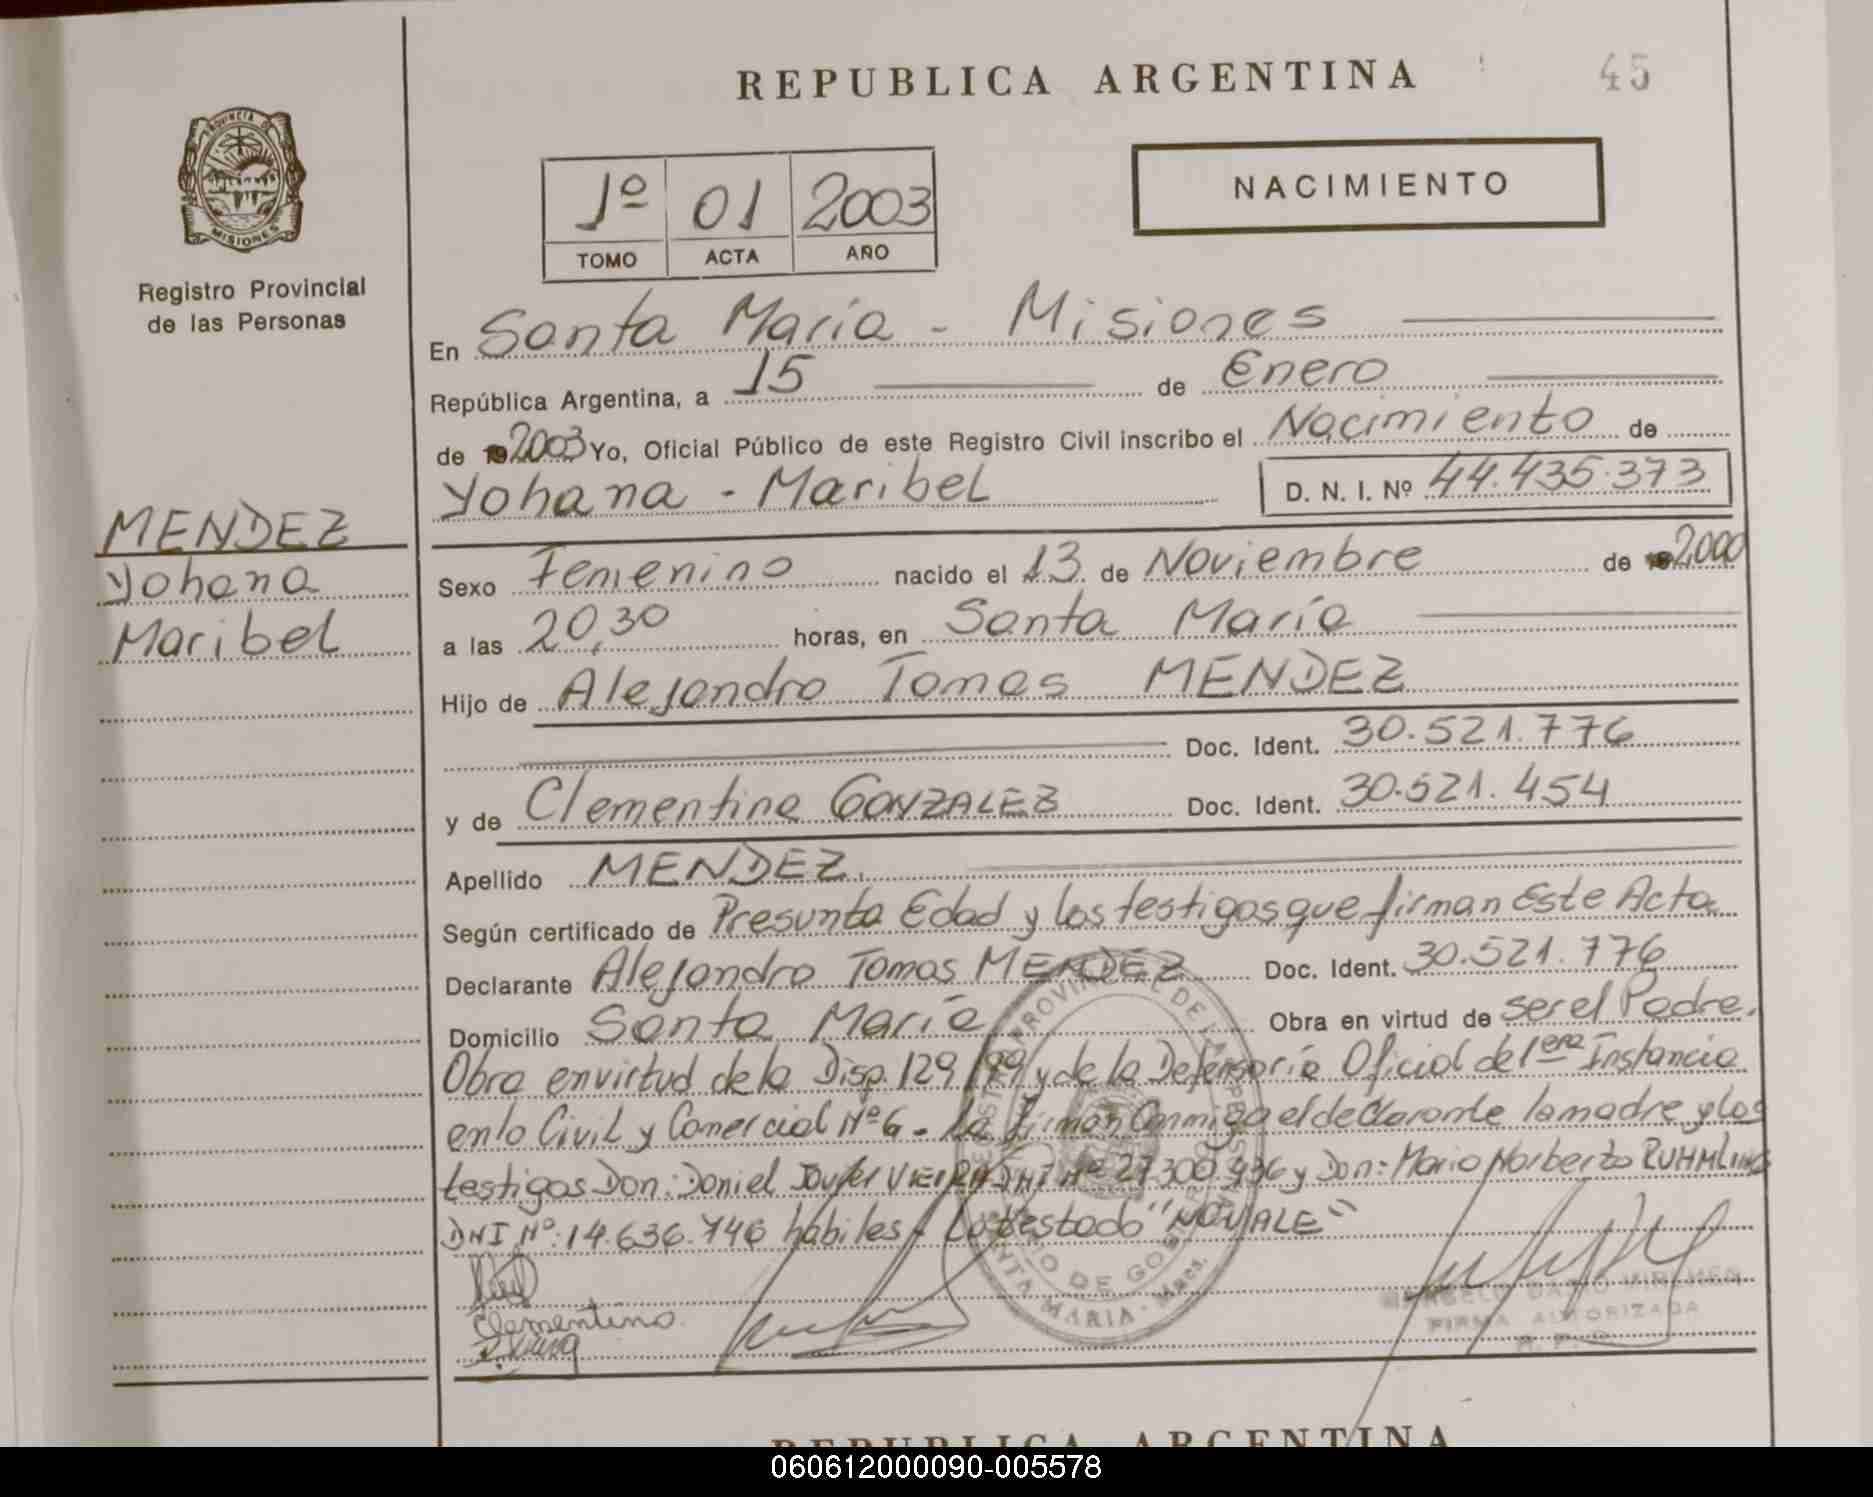 REPUBLICA ARGENTINA
45
PROVINCIA DE
MISIONES
Registro Provincial
de las Personas
1º 01 2003
TOMO ACTA AÑO
NACIMIENTO
En Santa María - Misiones
República Argentina, a 15 de Enero
de 2003 Yo, Oficial Público de este Registro Civil inscribo el Nacimiento de
Yohana - Maribel D. N. I. Nº 44.435.373
MENDEZ
Yohana
Maribel
Sexo Femenino nacido el 13 de Noviembre de 2000
a las 20,30 horas, en Santa María
Hijo de Alejandro Tomas MENDEZ
Doc. Ident. 30.521.776
y de Clementina GONZALEZ Doc. Ident. 30.521.454
Apellido MENDEZ.
Según certificado de Presunta Edad y los testigos que firman Este Acta
Declarante Alejandro Tomas MENDEZ Doc. Ident. 30.521.776
Domicilio Santa María Obra en virtud de ser el Padre.
Obra en virtud de la Disp. 129/99 y de la Defensoría Oficial de 1era Instancia
en lo Civil y Comercial Nº 6 - La firman Conmigo el declarante la madre y los
testigos Don: Daniel VIEIRA DNI Nº 27.300.936 y Don: Mario Norberto RUHMLING
DNI Nº: 14.636.746 hábiles - Lo testado "NO VALE"
Clementina
PROVINCIAL DE LAS PERSONAS
SANTA MARIA - Mnes.
FIRMA AUTORIZADA
REPUBLICA ARGENTINA
060612000090-005578